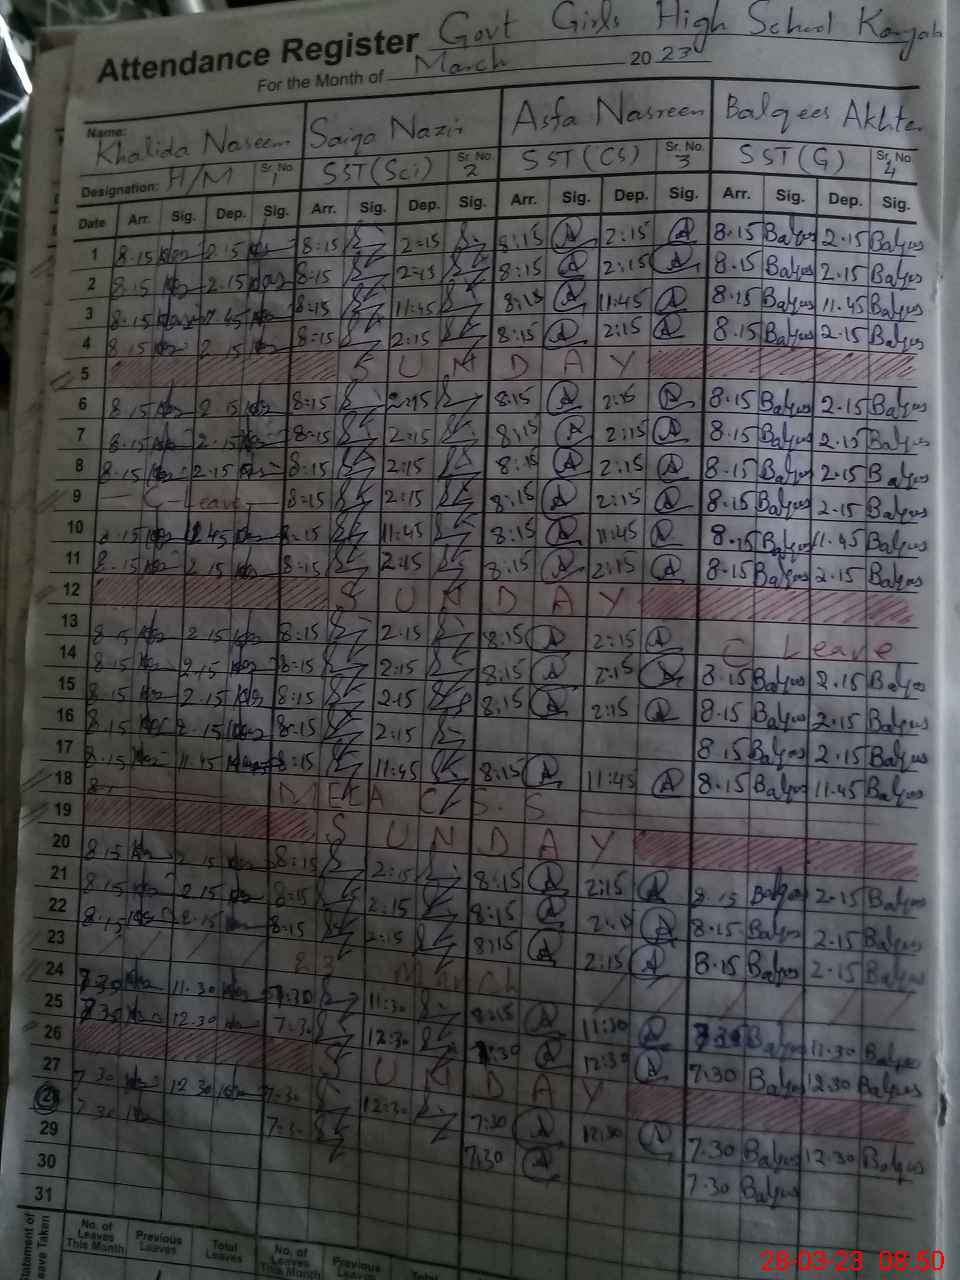 Govt Girls High School
Attendance Register
For the Month of March 2023
Name: Khalida Naseem Saiqa Nazir Asfa Nasreen Balqees Akhter
Designation: H/M Sr. No. 1 SST(Sci) Sr. No. 2 SST(CS) Sr. No. 3 SST(G) Sr. No. 4
Date Arr. Sig. Dep. Sig. Arr. Sig. Dep. Sig. Arr. Sig. Dep. Sig. Arr. Sig. Dep. Sig.
1 8.15 2.15 8:15 2:15 8:15 2:15 8.15 Balqees 2.15 Balqees
2 8.15 2.15 8:15 2:15 8:15 2:15 8.15 Balqees 2.15 Balqees
3 8.15 11.45 8:15 11:45 8:15 11:45 8.15 Balqees 11.45 Balqees
4 8.15 2.15 8:15 2:15 8:15 2:15 8.15 Balqees 2.15 Balqees
5 SUNDAY
6 8.15 2.15 8:15 2:15 8:15 2:15 8.15 Balqees 2.15 Balqees
7 8.15 2.15 8:15 2:15 8:15 2:15 8.15 Balqees 2.15 Balqees
8 8.15 2.15 8:15 2:15 8:15 2:15 8.15 Balqees 2.15 Balqees
9 C-Leave 8:15 2:15 8:15 2:15 8.15 Balqees 2.15 Balqees
10 8.15 11.45 8:15 11:45 8:15 11:45 8.15 Balqees 11.45 Balqees
11 8.15 2.15 8:15 2:15 8:15 2:15 8.15 Balqees 2.15 Balqees
12 SUNDAY
13 8.15 2.15 8:15 2:15 8:15 2:15 C Leave
14 8.15 2.15 8:15 2:15 8:15 2:15 8.15 Balqees 2.15 Balqees
15 8.15 2.15 8:15 2:15 8:15 2:15 8.15 Balqees 2.15 Balqees
16 8.15 2.15 8:15 2:15 8.15 Balqees 2.15 Balqees
17 8.15 11.45 8:15 11:45 8:15 11:45 8.15 Balqees 11.45 Balqees
18
19 SUNDAY
20 8.15 2.15 8:15 2:15 8:15 2:15 8.15 Balqees 2.15 Balqees
21 8.15 2.15 8:15 2:15 8:15 2:15 8.15 Balqees 2.15 Balqees
22 8.15 2.15 8:15 2:15 8:15 2:15 8.15 Balqees 2.15 Balqees
23 23 March
24 7.30 11.30 7:30 11:30 8:15 11:30 7.30 Balqees 11.30 Balqees
25 7.30 12.30 7:30 12:30 7:30 12:30 7.30 Balqees 12.30 Balqees
26 SUNDAY
27 7.30 12.30 7:30 12:30 7:30 12:30 7.30 Balqees 12.30 Balqees
28 7.30 7:30 7:30 7.30 Balqees
29
30
31
No. of Leaves This Month Previous Leaves Total Leaves No. of Leaves This Month Previous Leaves Total
28-03-23 08:50